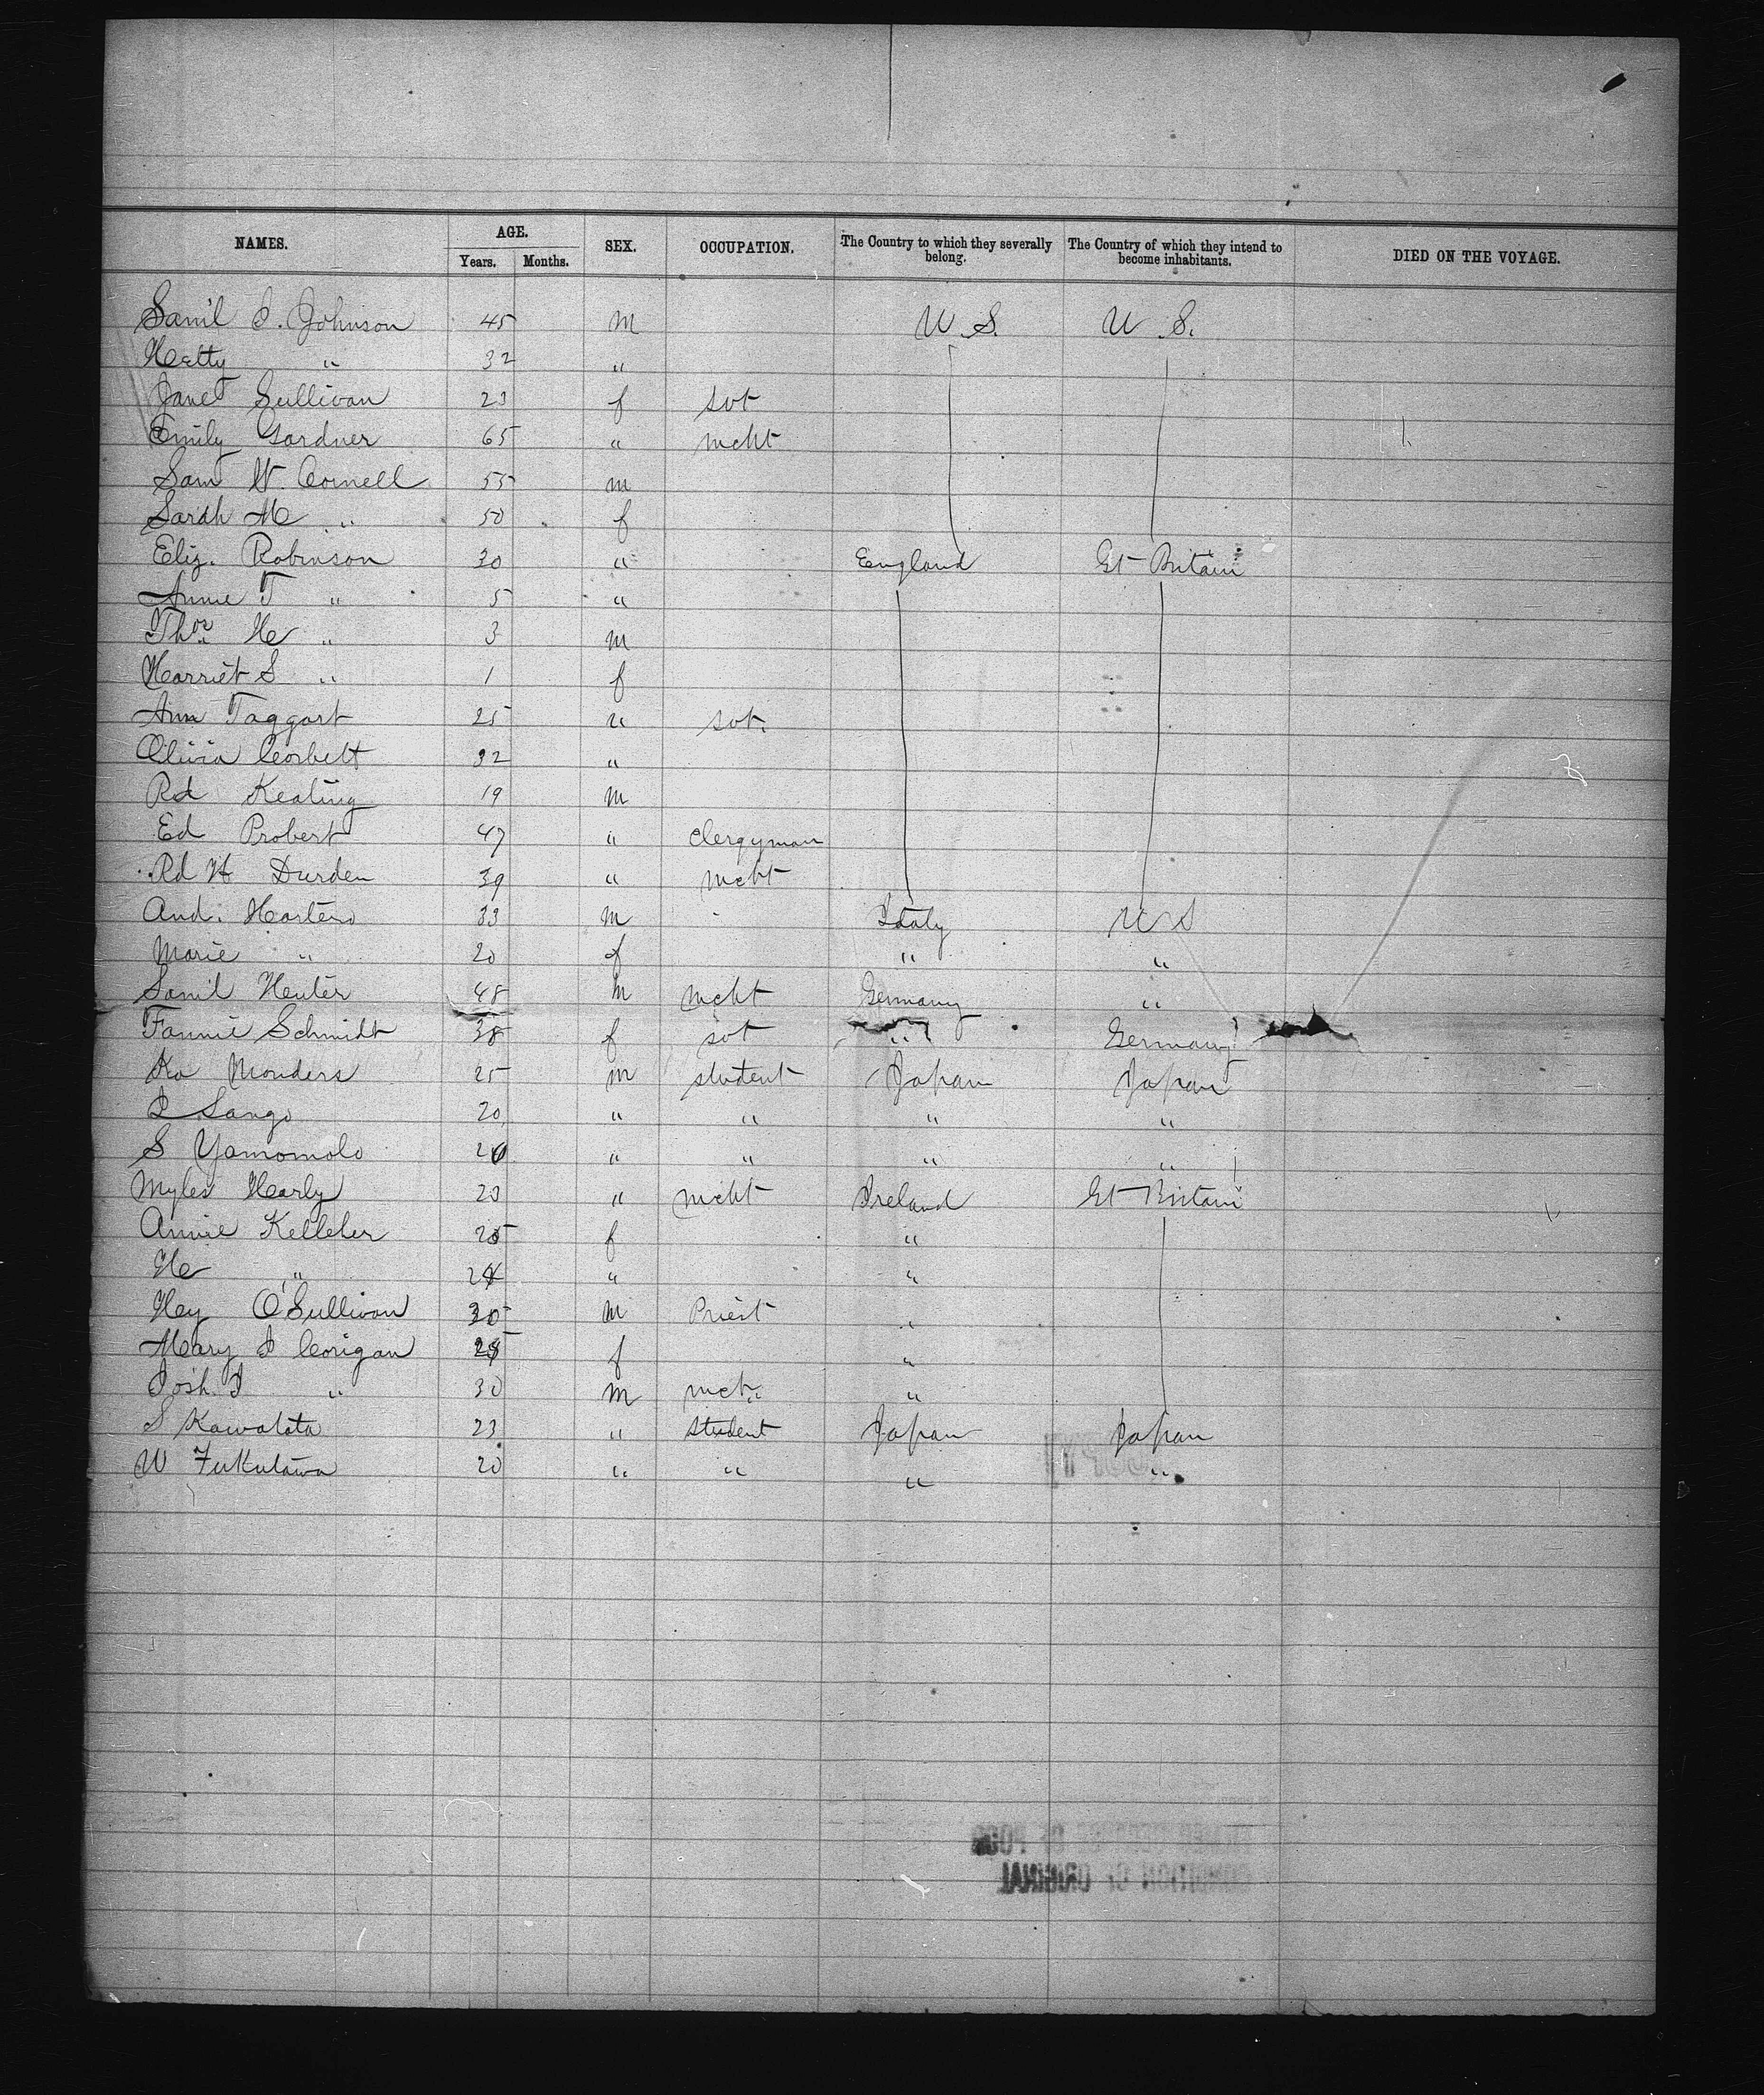 NAMES. AGE. SEX. OCCUPATION. The Country to which they severally belong. The Country of which they intend to become inhabitants. DIED ON THE VOYAGE.
Years. Months.
Sam'l I. Johnson 45 m U S. U S.
Hetty " 32 "
Jane Sullivan 23 f svt
Emily Gardner 65 " mcht
Sam W. Cornell 55 m
Sarah M " 50 f
Eliz. Robinson 30 " England Gt Britain
Annie T " 5 "
Thos. H " 3 m
Harriet S " 1 f
Ann Taggart 25 " svt.
Olivia Corbett 32 "
Rd Keating 19 m
Ed Probert 47 " Clergyman
Rd H Durden 39 " mcht
And. Hartero 33 m Italy U S
Marie " 20 f " "
Sam'l Henter 48 m mcht Germany "
Fannie Schmidt 38 f svt " Germany
Ko Monders 25 m student Japan Japan
I Sango 20 " " " "
S Yamomolo " " " "
Myles Hearly 23 " mcht Ireland Gt Britain
Annie Kelleher 25 f "
He " "  "
Hy O'Sullivan 30 m Priest "
Mary I Corigan f "
Josh. I " 30 m mct. "
S Kawatata 23 " Student Japan Japan
W Fukutawa 20 " " " "
CONDITION OF ORIGINAL